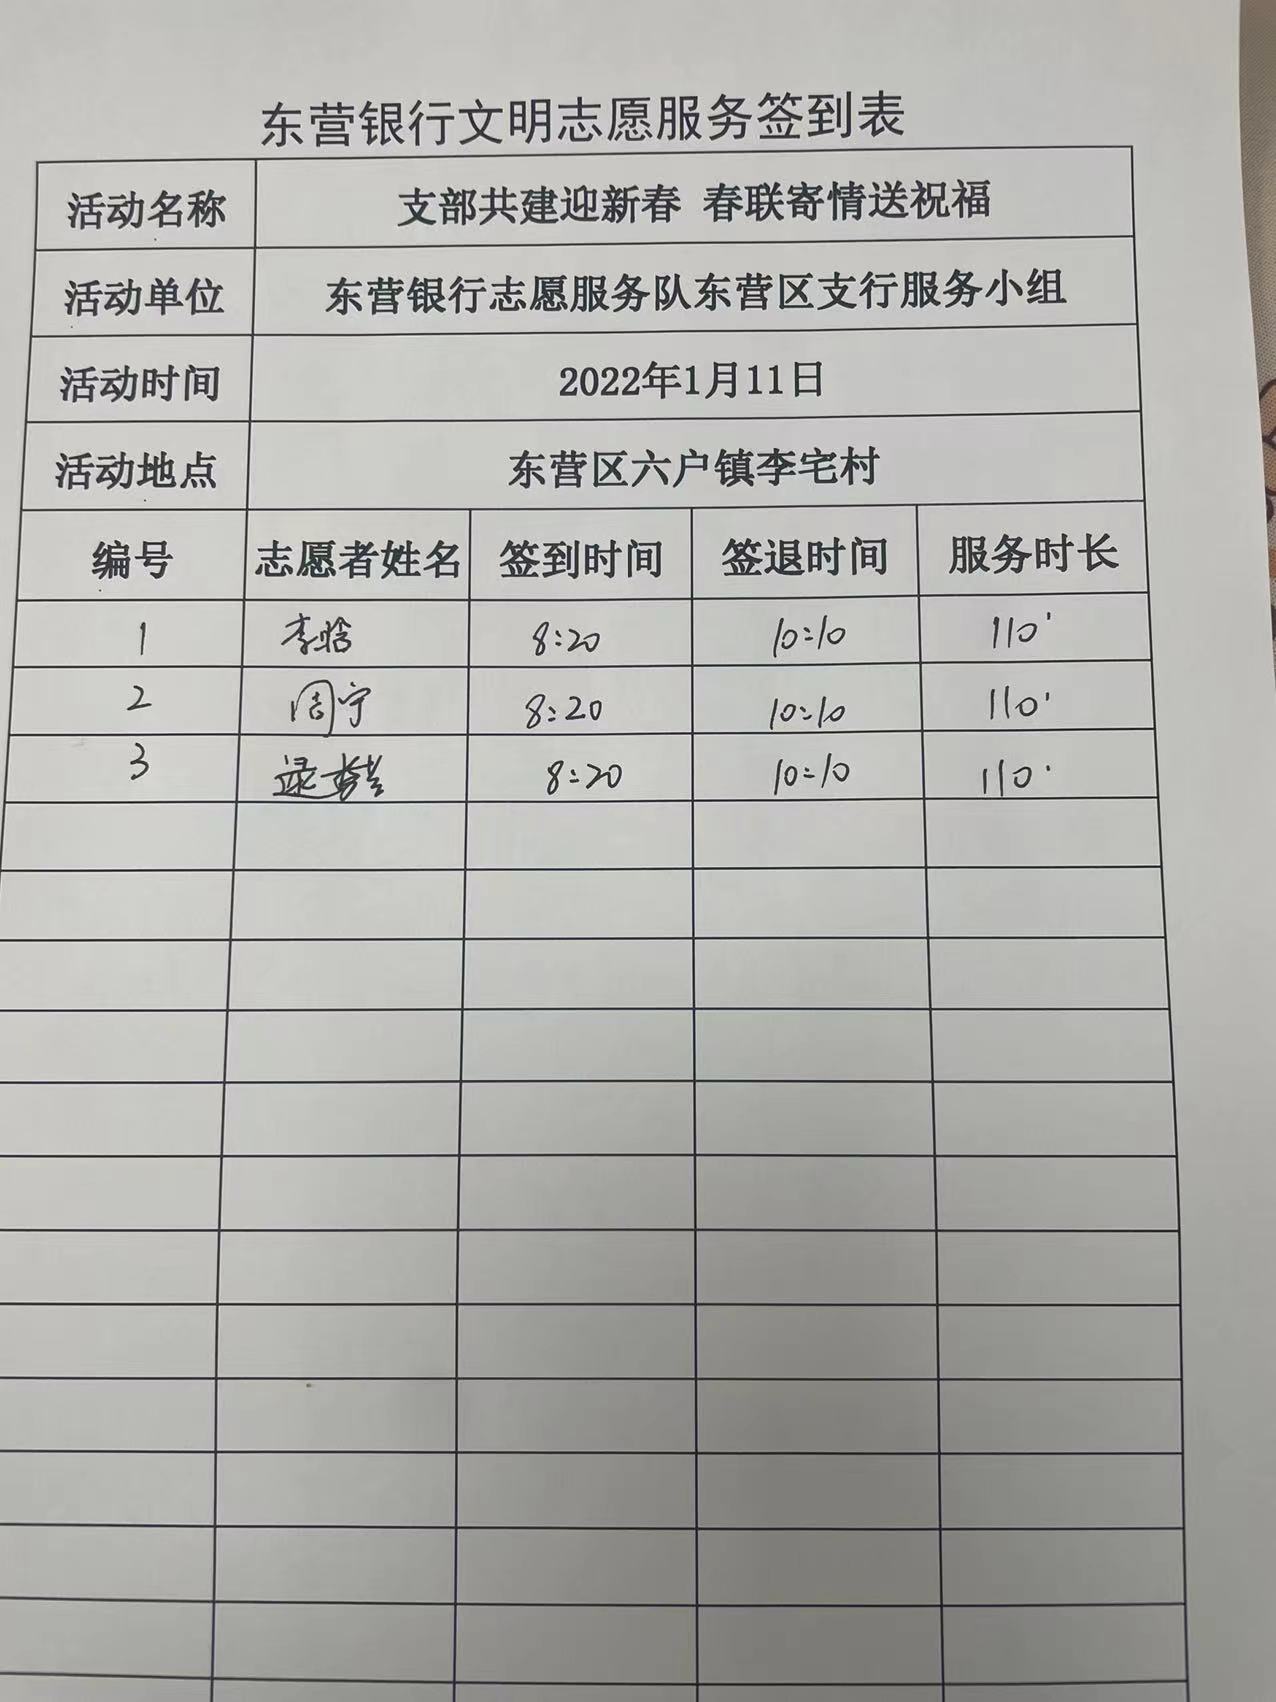 东营银行文明志愿服务签到表
活动名称 支部共建迎新春 春联寄情送祝福
活动单位 东营银行志愿服务队东营区支行服务小组
活动时间 2022年1月11日
活动地点 东营区六户镇李宅村
编号 志愿者姓名 签到时间 签退时间 服务时长
1 李晗 8:20 10:10 110'
2 周宁 8:20 10:10 110'
3 8:20 10:10 110'